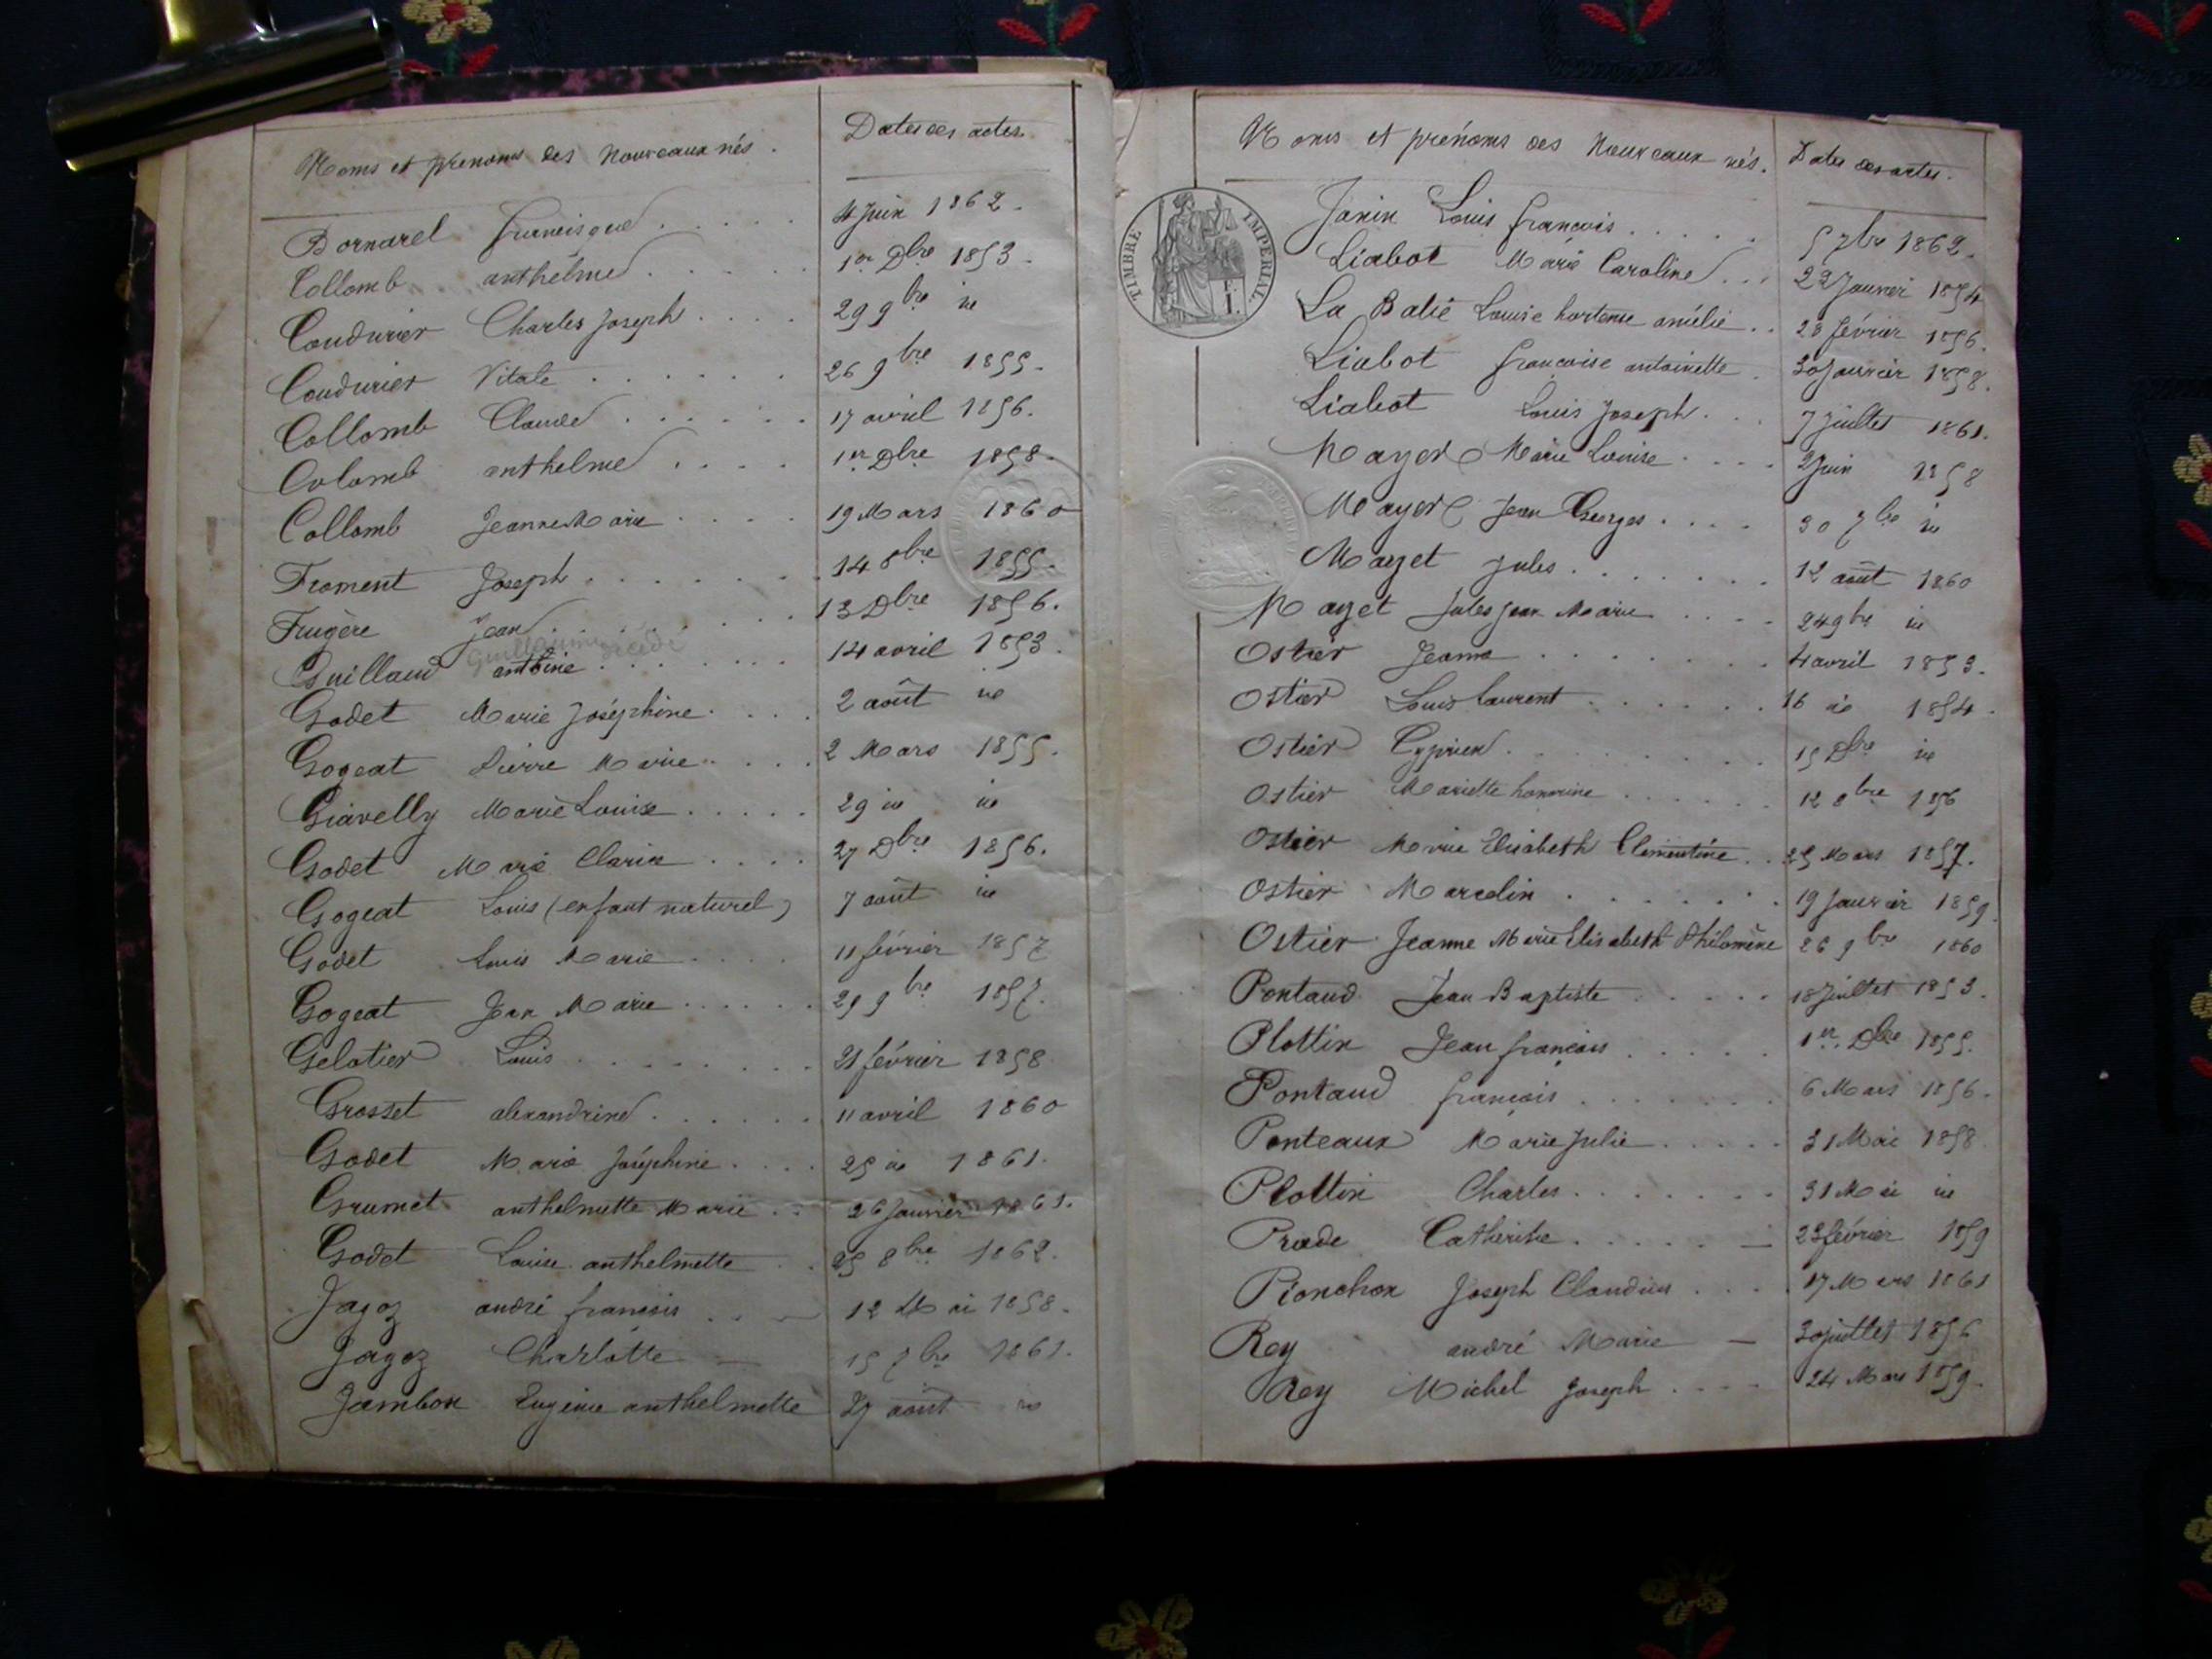 Noms et prénoms des Nouveaux nés.
Dates des actes
Bornarel francisque . . . . . 4 Juin 1862.
Collomb anthelme . . . . . 1er Dbre 1853.
Coudurier Charles Joseph . . . . 29 9bre id
Coudurier Vitale . . . . . . 26 9bre 1855.
Collomb Claude . . . . . . 17 avril 1856.
Colomb anthelme . . . . 1er Dbre 1858.
Collomb Jeanne Marie . . . . 19 Mars 1860
Froment Joseph . . . . . . . 14 8bre 1855.
Frugère Jean . . . . . . . 13 Dbre 1856.
Guillaume décédé
Guillaud antoine . . . . . . . 14 avril 1853.
Godet Marie Joséphine . . . . 2 août id
Gogeat Pierre Marie . . . . 2 Mars 1855.
Giavelly Marie Louise . . . . . 29 id id
Godet Marie Clarix . . . . 27 Dbre 1856.
Gogeat Louis (enfant naturel) 7 août id
Godet Louis Marie . . . . 11 février 1857
Gogeat Jean Marie . . . . . . 29 9bre 1857.
Gelatier Louis . . . . . . . . 21 février 1858
Grosset alexandrine . . . . . . 11 avril 1860
Godet Marie Joséphine . . . . 25 id 1861.
Grumet anthelmette Marie . . 26 Janvier 1861.
Godet Louise anthelmette . . 25 8bre 1862.
Jagoz andré françois . . — 12 Mai 1858.
Jagoz Charlotte — 15 7bre 1861.
Jambon Eugénie anthelmette 27 août id
Noms et prénoms des Nouveaux nés.
Dates des actes.
TIMBRE IMPERIAL.
Janin Louis françois . . . . . 5 7bre 1862.
Liabot Marie Caroline . . . 22 Janvier 1854
La Batie Louise hortense amélie . . 28 février 1856.
Liabot françoise antoinette . 30 Janvier 1858.
Liabot Louis Joseph . . 7 Juillet 1861.
Mayer Marie Louise . . . . 2 Juin 1858
Mayer Jean Georges . . . . 30 7bre id
Mayet Jules . . . . . . . 12 août 1860
Mayet Jules Jean Marie . . . . 24 9bre id
Ostier Jeanne . . . . . . . . 4 avril 1853.
Ostier Louis Laurent . . . . . . 16 id 1854.
Ostier Cyprien . . . . . . . . 15 Dbre id
Ostier Mariette honorine . . . . . . 12 8bre 1856
Ostier Marie Elisabeth Clémentine . . 25 Mars 1857.
Ostier Marcelin . . . . . . . 19 Janvier 1859.
Ostier Jeanne Marie Elisabeth Philomène 26 9bre 1860
Pontaud Jean Baptiste . . . . . 18 Juillet 1853.
Plottin Jean françois . . . . . 1er Dbre 1855.
Pontaud françois . . . . . . . 6 Mars 1856.
Ponteaux Marie Julie . . . . . 31 Mai 1858
Plottin Charles . . . . . . . 31 Mai id
Prade Catherine . . . . . — 23 février 1859
Pionchon Joseph Claudius . . . . 17 Mars 1861
Rey andré Marie — 30 juillet 1856
Rey Michel Joseph . . . . 24 Mars 1859.